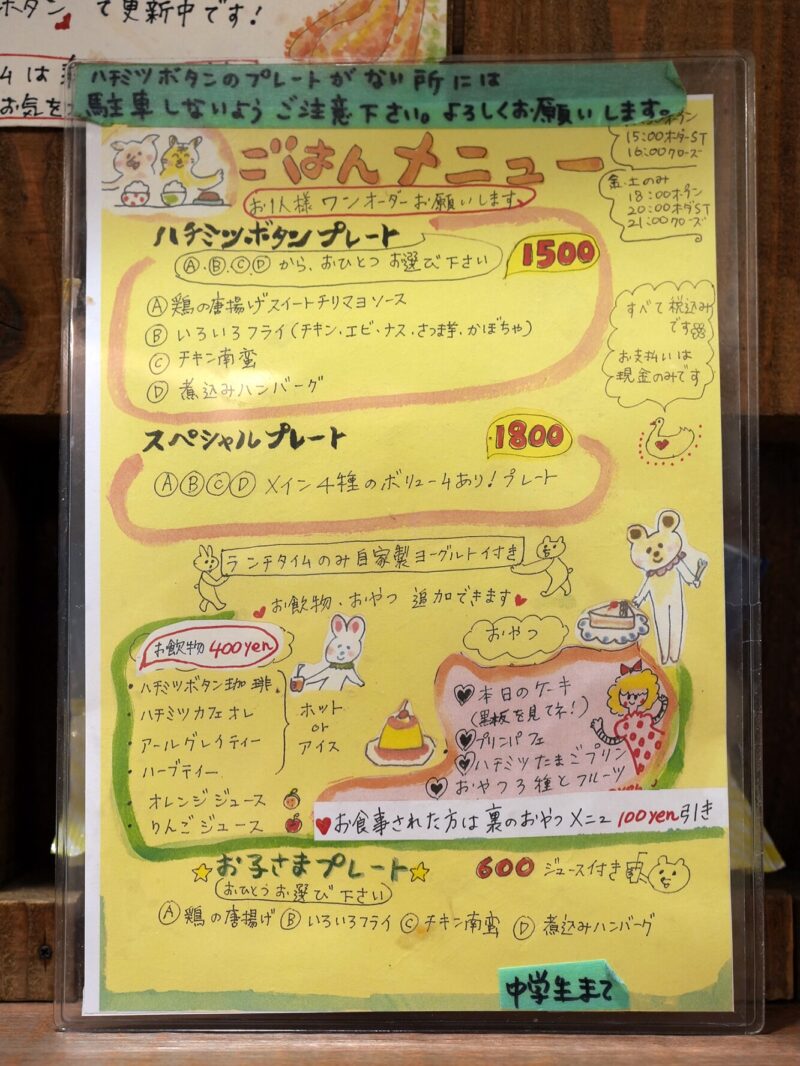 ボタン♥で更新中です！
ハチミツボタンのプレートがない所には
駐車しないようご注意下さい。よろしくお願いします。
15:00オーダーST
16:00クローズ
ごはんメニュー
お1人様ワンオーダーお願いします
金.土のみ
18:00オープン
20:00オーダST
21:00クローズ
ハチミツボタンプレート
1500
Ⓐ.Ⓑ.Ⓒ.Ⓓから、おひとつお選び下さい
Ⓐ鶏の唐揚げスイートチリマヨソース
Ⓑいろいろフライ(チキン・エビ・ナス・さつま芋・かぼちゃ)
Ⓒチキン南蛮
Ⓓ煮込みハンバーグ
すべて税込み
です
お支払いは
現金のみです
スペシャルプレート
1800
ⒶⒷⒸⒹメイン4種のボリュームあり！プレート
ランチタイムのみ自家製ヨーグルト付き
♥お飲物、おやつ 追加できます♥
お飲物 400yen
・ハチミツボタン珈琲
・ハチミツカフェオレ
・アールグレイティー
・ハーブティー
ホット
or
アイス
・オレンジジュース
・りんごジュース
おやつ
♥本日のケーキ
(黒板を見てネ！)
♥プリンパフェ
♥ハチミツたまごプリン
♥おやつ3種とフルーツ
♥お食事された方は裏のおやつメニュー100yen引き
☆お子さまプレート☆
600 ジュース付き
おひとつお選び下さい
Ⓐ鶏の唐揚げ Ⓑいろいろフライ Ⓒチキン南蛮 Ⓓ煮込みハンバーグ
中学生まで